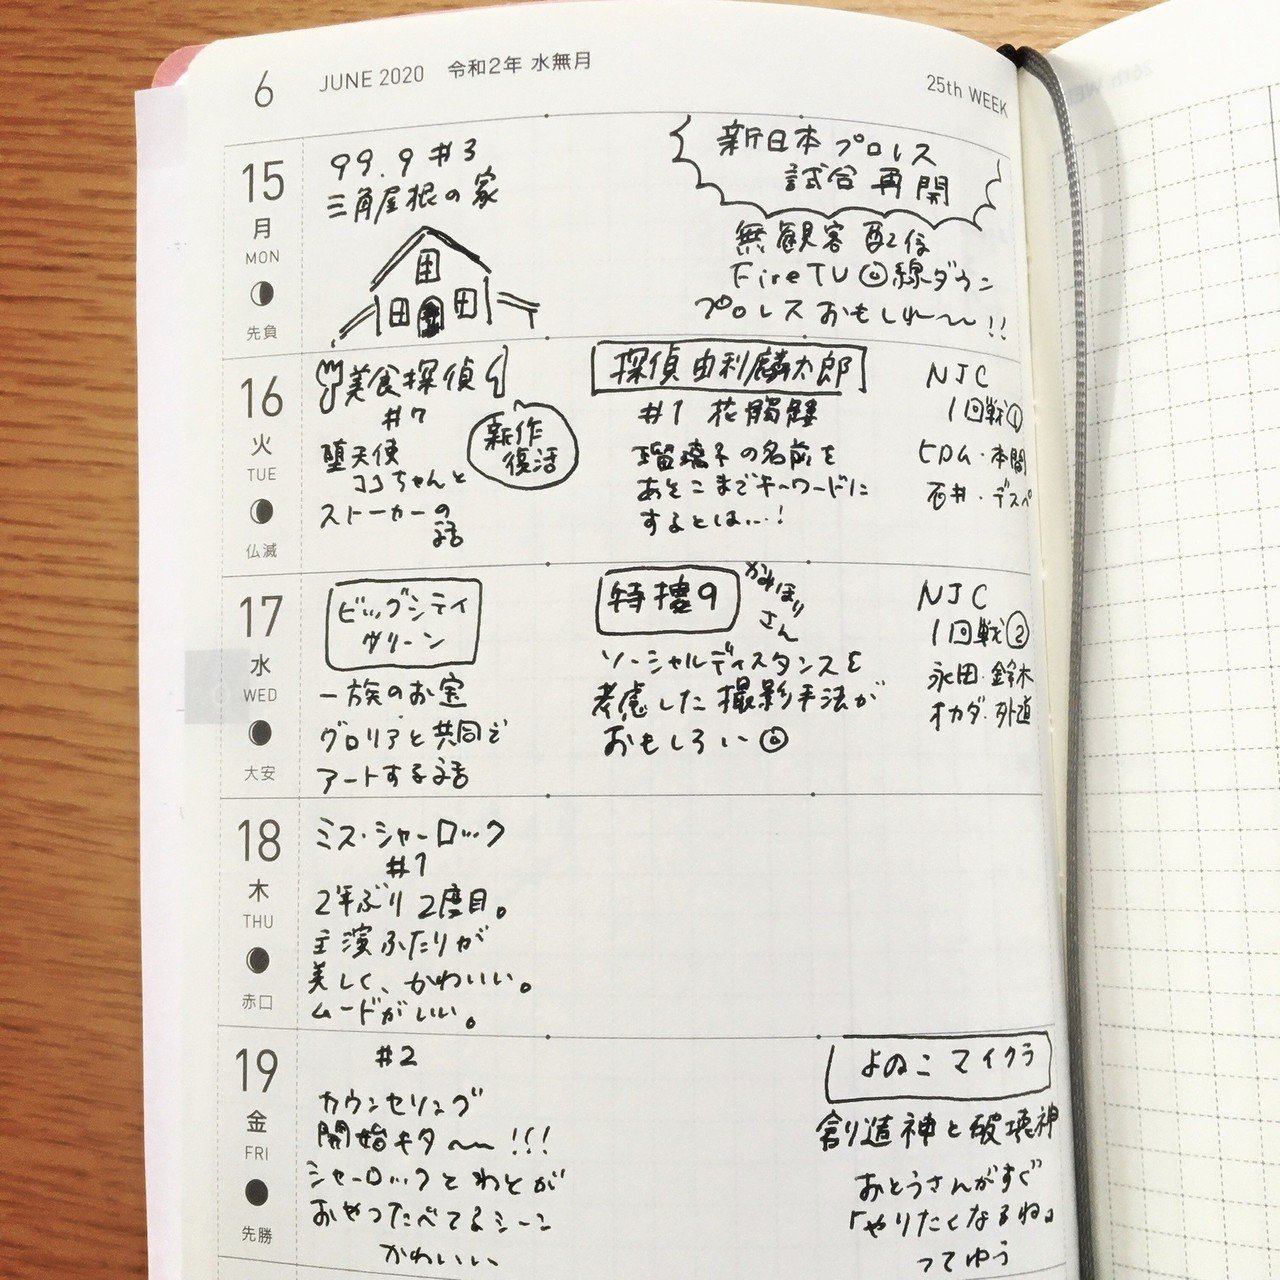 6 JUNE 2020 令和2年 水無月 25th WEEK
15
月
MON
先負
99.9 #3
三角屋根の家
新日本プロレス
試合再開
無観客配信
FireTV 回線ダウン
プロレスおもしれ〜〜!!
16
火
TUE
仏滅
美食探偵
#7
新作
復活
堕天使
ココちゃんと
ストーカーの
話
探偵由利麟太郎
#1 花髑髏
瑠璃子の名前を
あそこまでキーワードに
するとは…!
NJC
1回戦①
ヒロム・本間
石井・デスペ
17
水
WED
大安
ビッグシティ
グリーン
一族のお宝
グロリアと共同で
アートする話
特撮9
かみほりさん
ソーシャルディスタンスを
考慮した撮影手法が
おもしろい
NJC
1回戦②
永田・鈴木
オカダ・外道
18
木
THU
赤口
ミス・シャーロック
#1
2年ぶり2度目。
主演ふたりが
美しく、かわいい。
ムードがいい。
19
金
FRI
先勝
#2
カウンセリング
開始キタ〜〜!!!
シャーロックとわとが
おやつたべてるシーン
かわいい
よゐこマイクラ
創造神と破壊神
おとうさんがすぐ
「やりたくなるね」
ってゆう